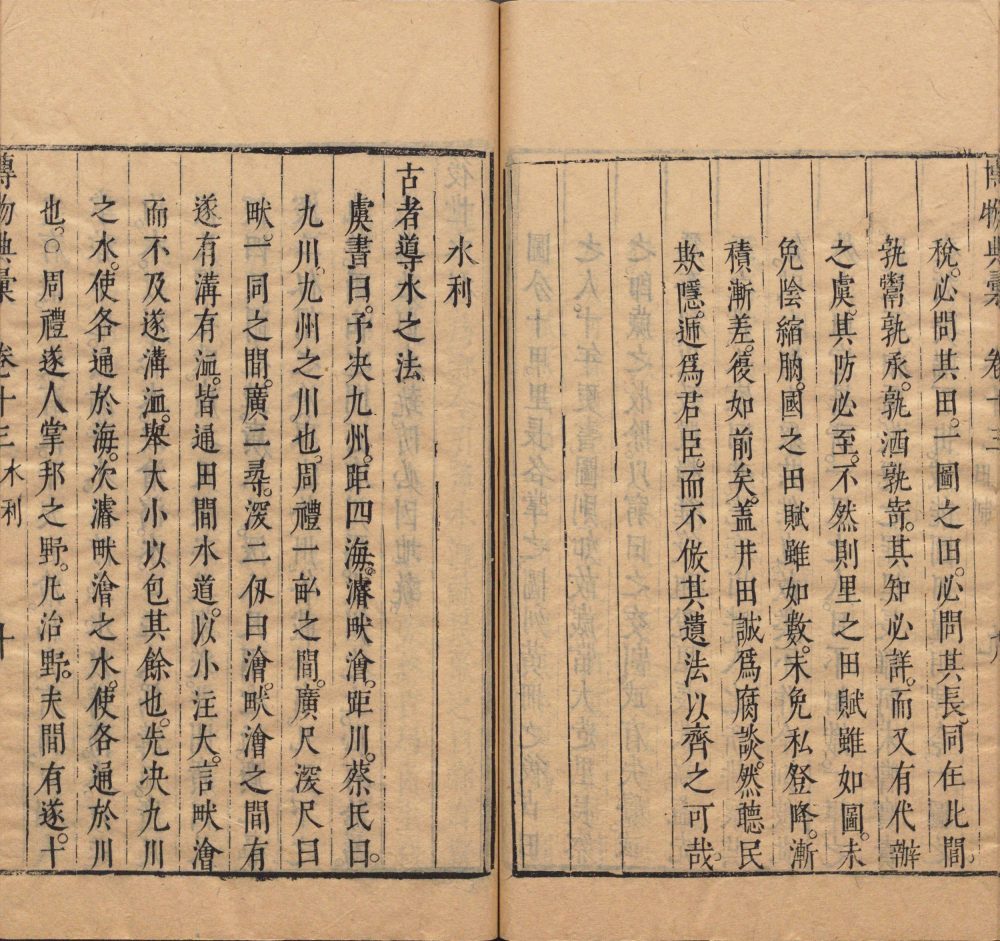 博物典彙 卷十三 九
稅。必問其田。一圖之田。必問其長。同在比閭。
孰鬻孰承。孰洒孰寄。其知必詳。而又有代辦
之虞。其防必至。不然則里之田賦雖如圖。未
免陰縮朒。國之田賦雖如數。未免私登降。漸
積漸差。復如前矣。蓋井田誠爲腐談。然聽民
欺隱。遞爲君臣。而不倣其遺法以齊之可哉。
水利
古者導水之法
虞書曰。予決九州。距四海。濬畎澮。距川。蔡氏曰。
九川。九州之川也。周禮一畝之間。廣尺深尺曰
畎。一同之間。廣二尋。深二仭曰澮。畎澮之間有
遂有溝有洫。皆通田間水道。以小注大。言畎澮
而不及遂溝洫。舉大小以包其餘也。先決九川
之水。使各通於海。次濬畎澮之水。使各通於川
也。○周禮遂人掌邦之野。凡治野。夫間有遂。十
博物典彙 卷十三 水利 十